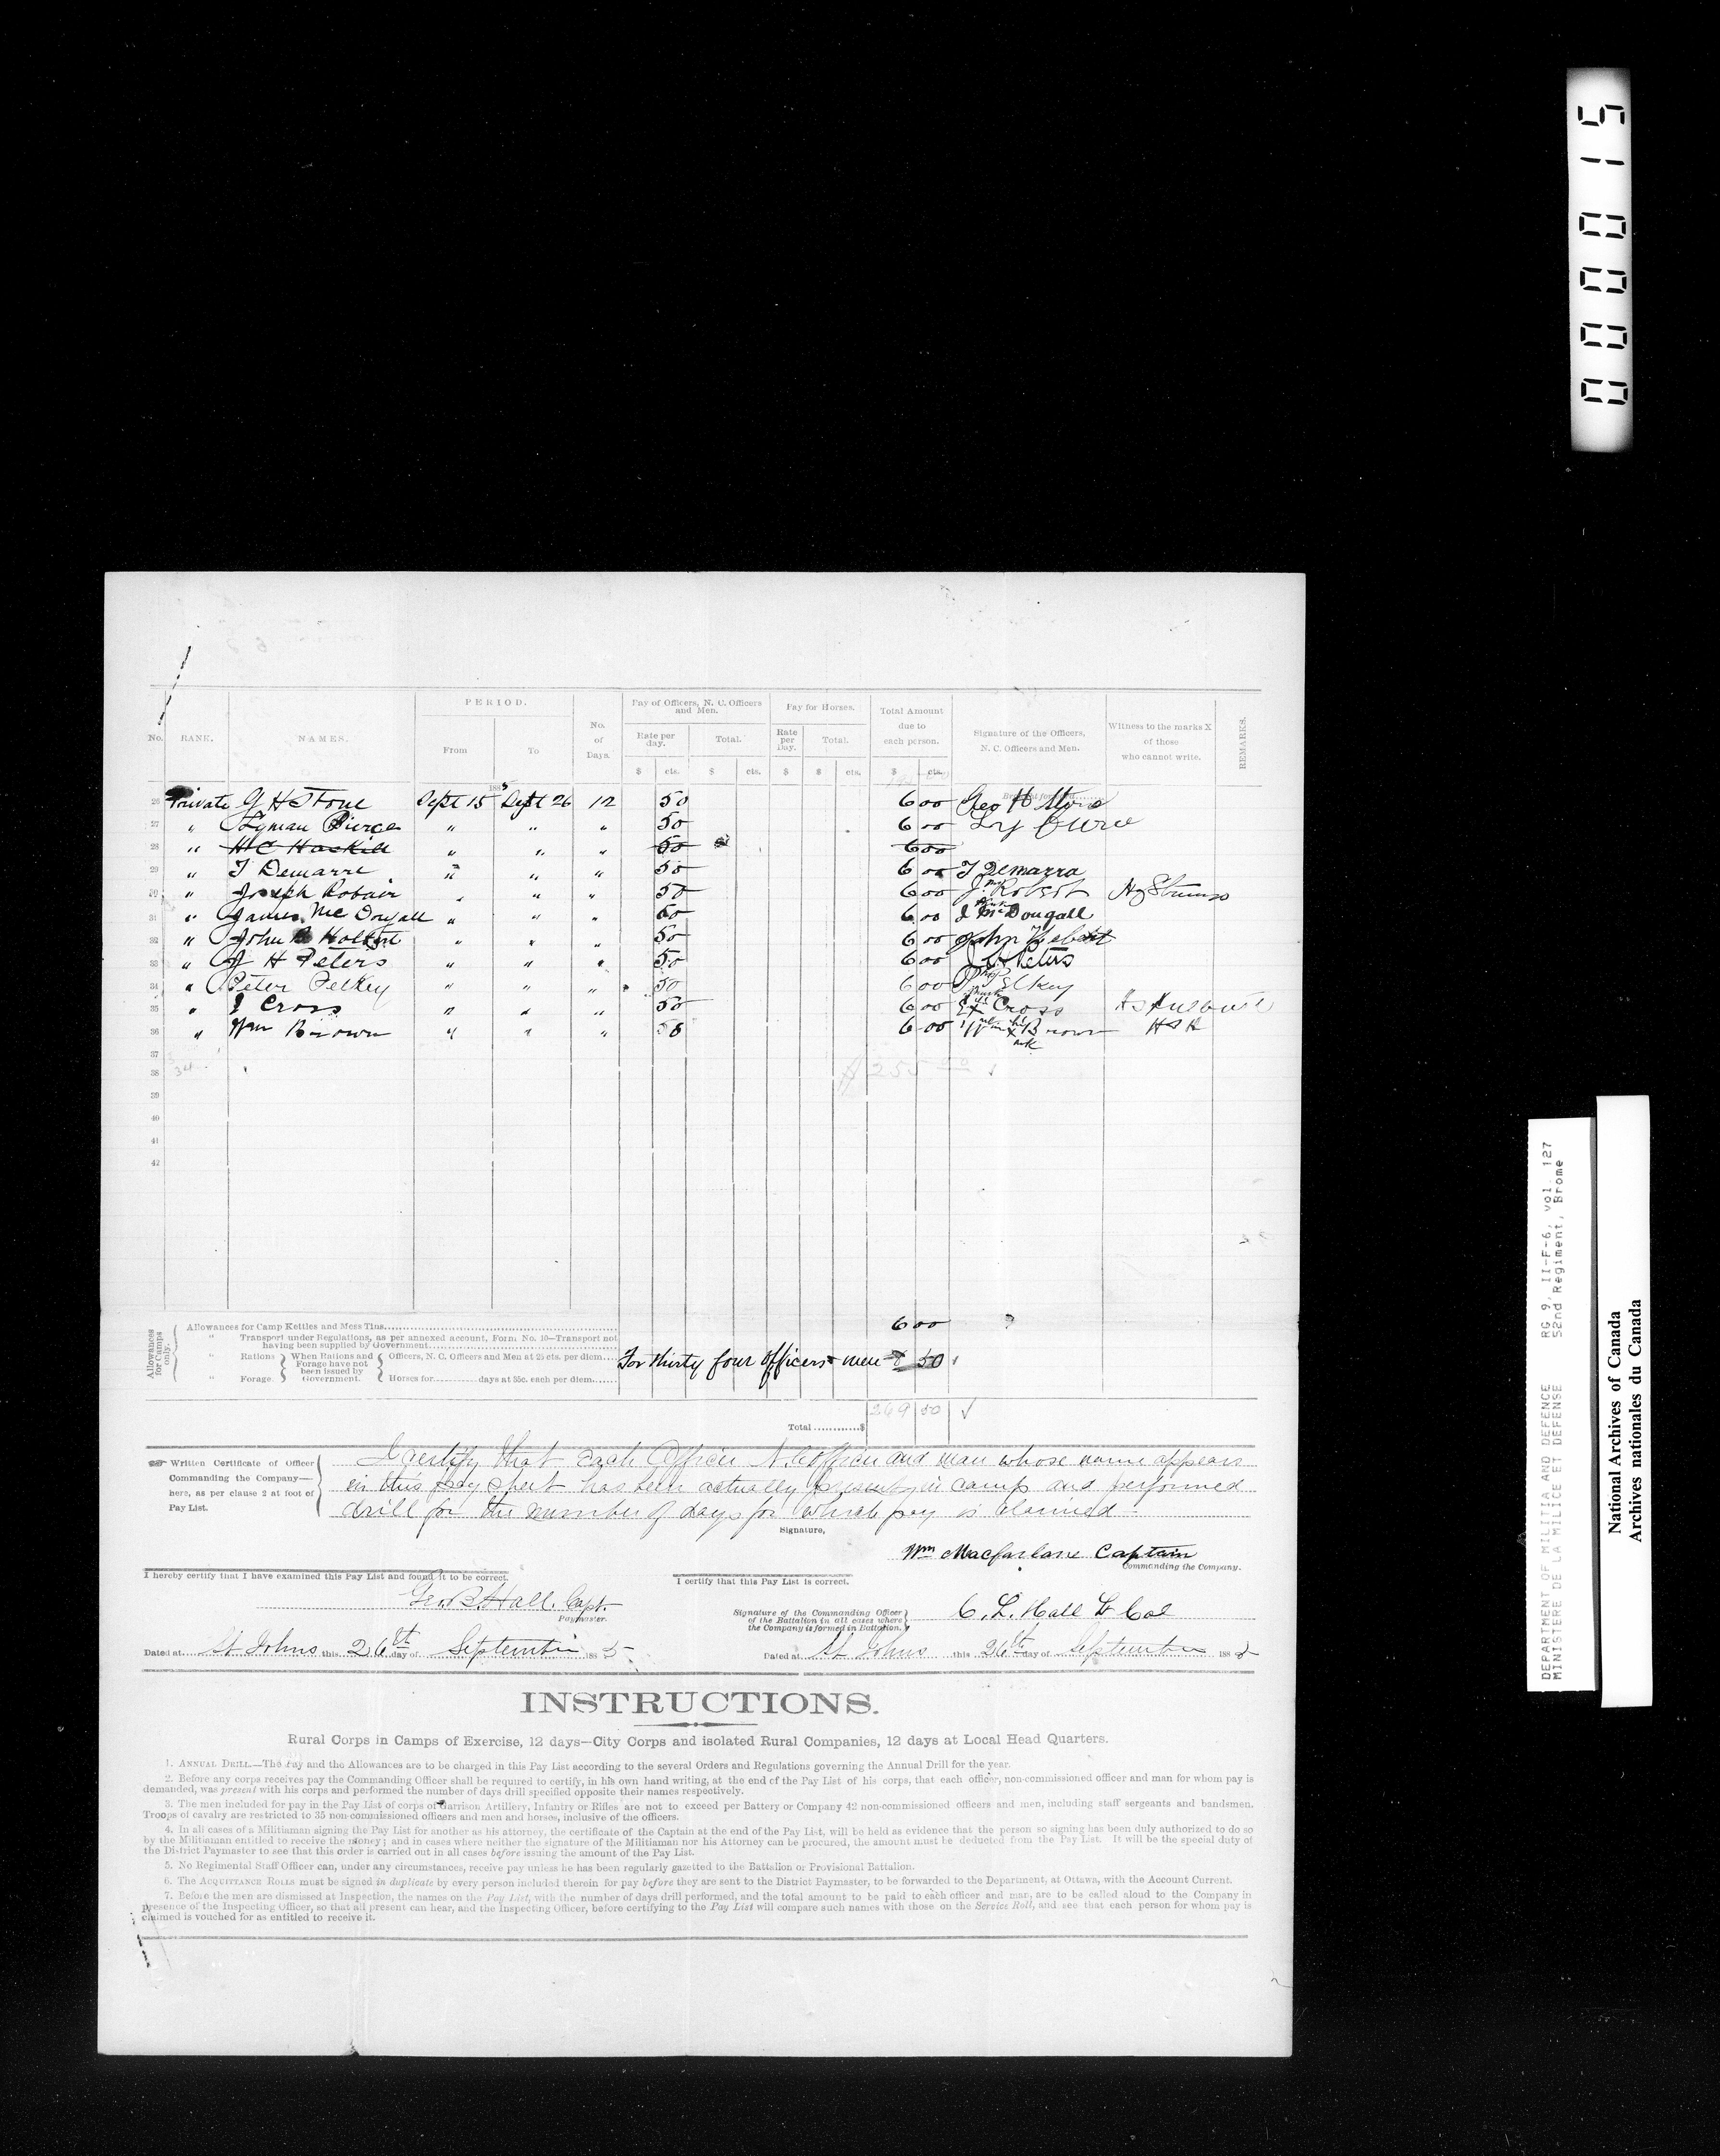 000015
PERIOD.
Pay of Officers, N. C. Officers and Men.
Pay for Horses.
Total Amount due to each person.
No. RANK. NAMES. From To No. of Days. Rate per day. Total. Rate per Day. Total. Signature of the Officers, N. C. Officers and Men. Witness to the marks X of those who cannot write. REMARKS.
$ cts. $ cts. $ $ cts. $ cts.
1885
26 Private G H Stone Sept 15 Sept 26 12 50 6 00 Geo H Stone
27 " Lyman Pierce " " " 50 6 00
28 " H C Haskill " " " 50 6 00
29 " T Demarre " " " 50 6 00 T Demarra
30 " Joseph Robair " " " 50 6 00 J. Robert
31 " James McDougall " " " 50 6 00 J McDougall
32 " John " " " 50 6 00 John
33 " J H Peters " " " 50 6 00 J H Peters
34 " Peter Pelkey " " " 50 6 00 P Pelkey
35 " J Cross " " " 50 6 00 Cross
36 " Wm Brown " " " 50 6 00 Wm X Brown
37
38 34 $255 00
39
40
41
42
Allowances for Camps only.
Allowances for Camp Kettles and Mess Tins 6 00
" Transport under Regulations, as per annexed account, Form: No. 10—Transport not having been supplied by Government
" Rations } When Rations and Forage have not been issued by Government. { Officers, N. C. Officers and Men at 25 cts. per diem For thirty four officers & men 8 50
" Forage. Horses for days at 35c. each per diem
Total $ 269 50
Written Certificate of Officer Commanding the Company—here, as per clause 2 at foot of Pay List.
I certify that each Officer N. C. officer and man whose name appears
in this pay sheet has been actually present in camp and performed
drill for the number of days for which pay is claimed
Signature,
Wm Macfarlane Captain
Commanding the Company.
I hereby certify that I have examined this Pay List and found it to be correct.
I certify that this Pay List is correct.
Geo. B. Hall. Capt.
Paymaster.
Signature of the Commanding Officer of the Battalion in all cases where the Company is formed in Battalion.
C. L. Hall Lt Col
Dated at St Johns this 26th day of September 1885
Dated at St Johns this 26th day of September 1885
INSTRUCTIONS.
Rural Corps in Camps of Exercise, 12 days—City Corps and isolated Rural Companies, 12 days at Local Head Quarters.
1. ANNUAL DRILL.—The Pay and the Allowances are to be charged in this Pay List according to the several Orders and Regulations governing the Annual Drill for the year.
2. Before any corps receives pay the Commanding Officer shall be required to certify, in his own hand writing, at the end of the Pay List of his corps, that each officer, non-commissioned officer and man for whom pay is
demanded, was present with his corps and performed the number of days drill specified opposite their names respectively.
3. The men included for pay in the Pay List of corps of Garrison Artillery, Infantry or Rifles are not to exceed per Battery or Company 42 non-commissioned officers and men, including staff sergeants and bandsmen.
Troops of cavalry are restricted to 35 non-commissioned officers and men and horses, inclusive of the officers.
4. In all cases of a Militiaman signing the Pay List for another as his attorney, the certificate of the Captain at the end of the Pay List, will be held as evidence that the person so signing has been duly authorized to do so
by the Militiaman entitled to receive the money; and in cases where neither the signature of the Militiaman nor his Attorney can be procured, the amount must be deducted from the Pay List. It will be the special duty of
the District Paymaster to see that this order is carried out in all cases before issuing the amount of the Pay List.
5. No Regimental Staff Officer can, under any circumstances, receive pay unless he has been regularly gazetted to the Battalion or Provisional Battalion.
6. The ACQUITTANCE ROLLS must be signed in duplicate by every person included therein for pay before they are sent to the District Paymaster, to be forwarded to the Department, at Ottawa, with the Account Current.
7. Before the men are dismissed at Inspection, the names on the Pay List, with the number of days drill performed, and the total amount to be paid to each officer and man, are to be called aloud to the Company in
presence of the Inspecting Officer, so that all present can hear, and the Inspecting Officer, before certifying to the Pay List will compare such names with those on the Service Roll, and see that each person for whom pay is
claimed is vouched for as entitled to receive it.
DEPARTMENT OF MILITIA AND DEFENCE RG 9, II-F-6, vol. 127
MINISTERE DE LA MILICE ET DEFENSE 52nd Regiment, Brome
National Archives of Canada
Archives nationales du Canada